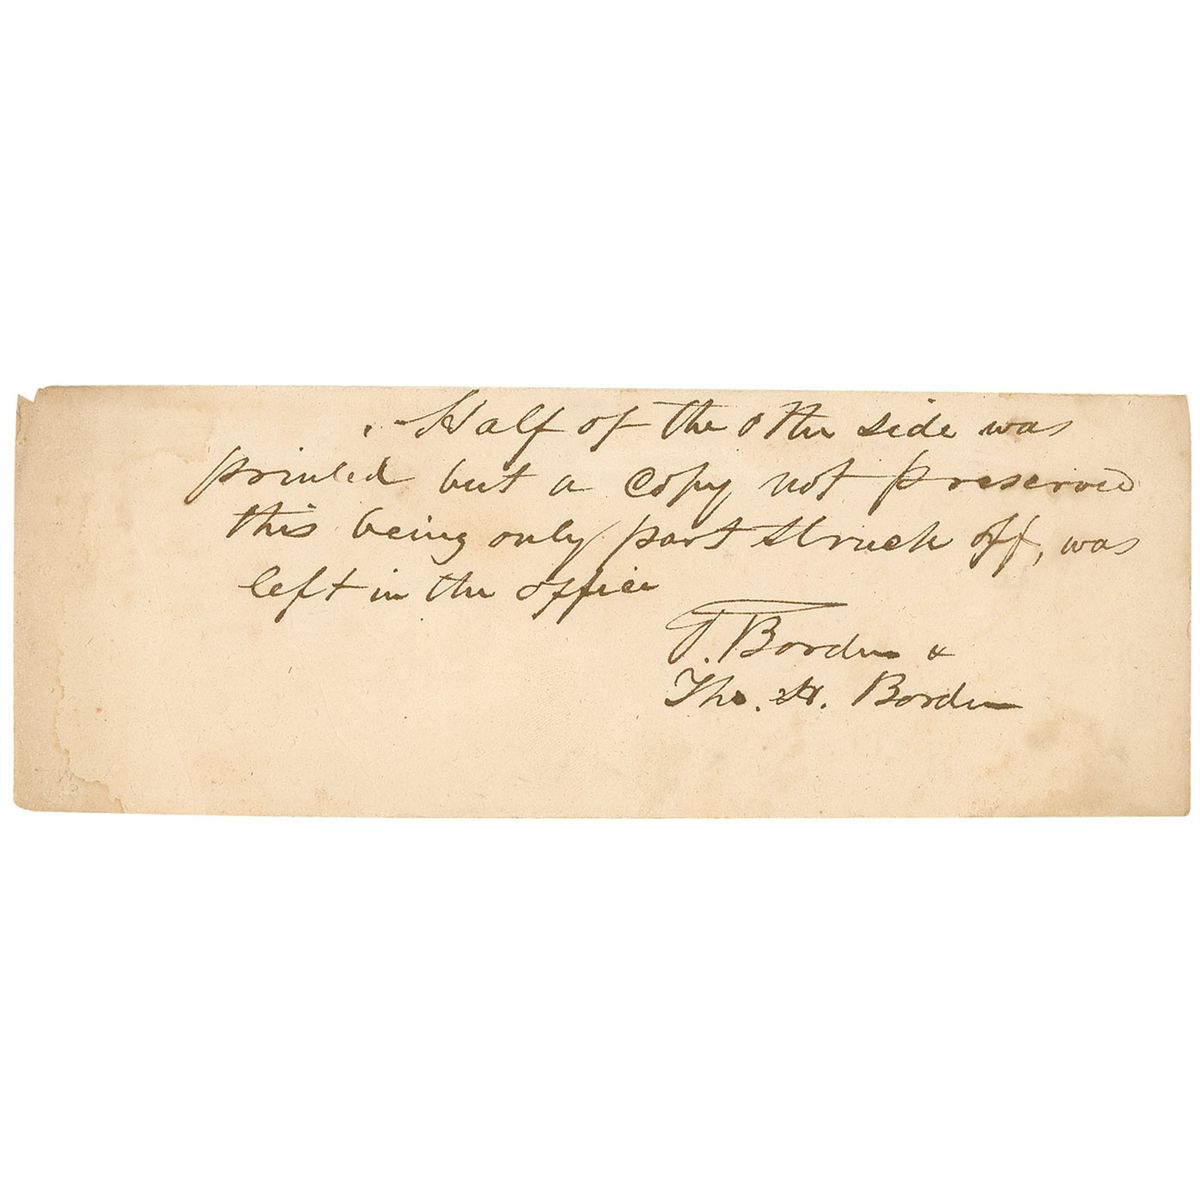 Half of the other side was
printed but a copy not preserved
this being only part struck off, was
left in the office
T. Borden &
Tho. H. Borden